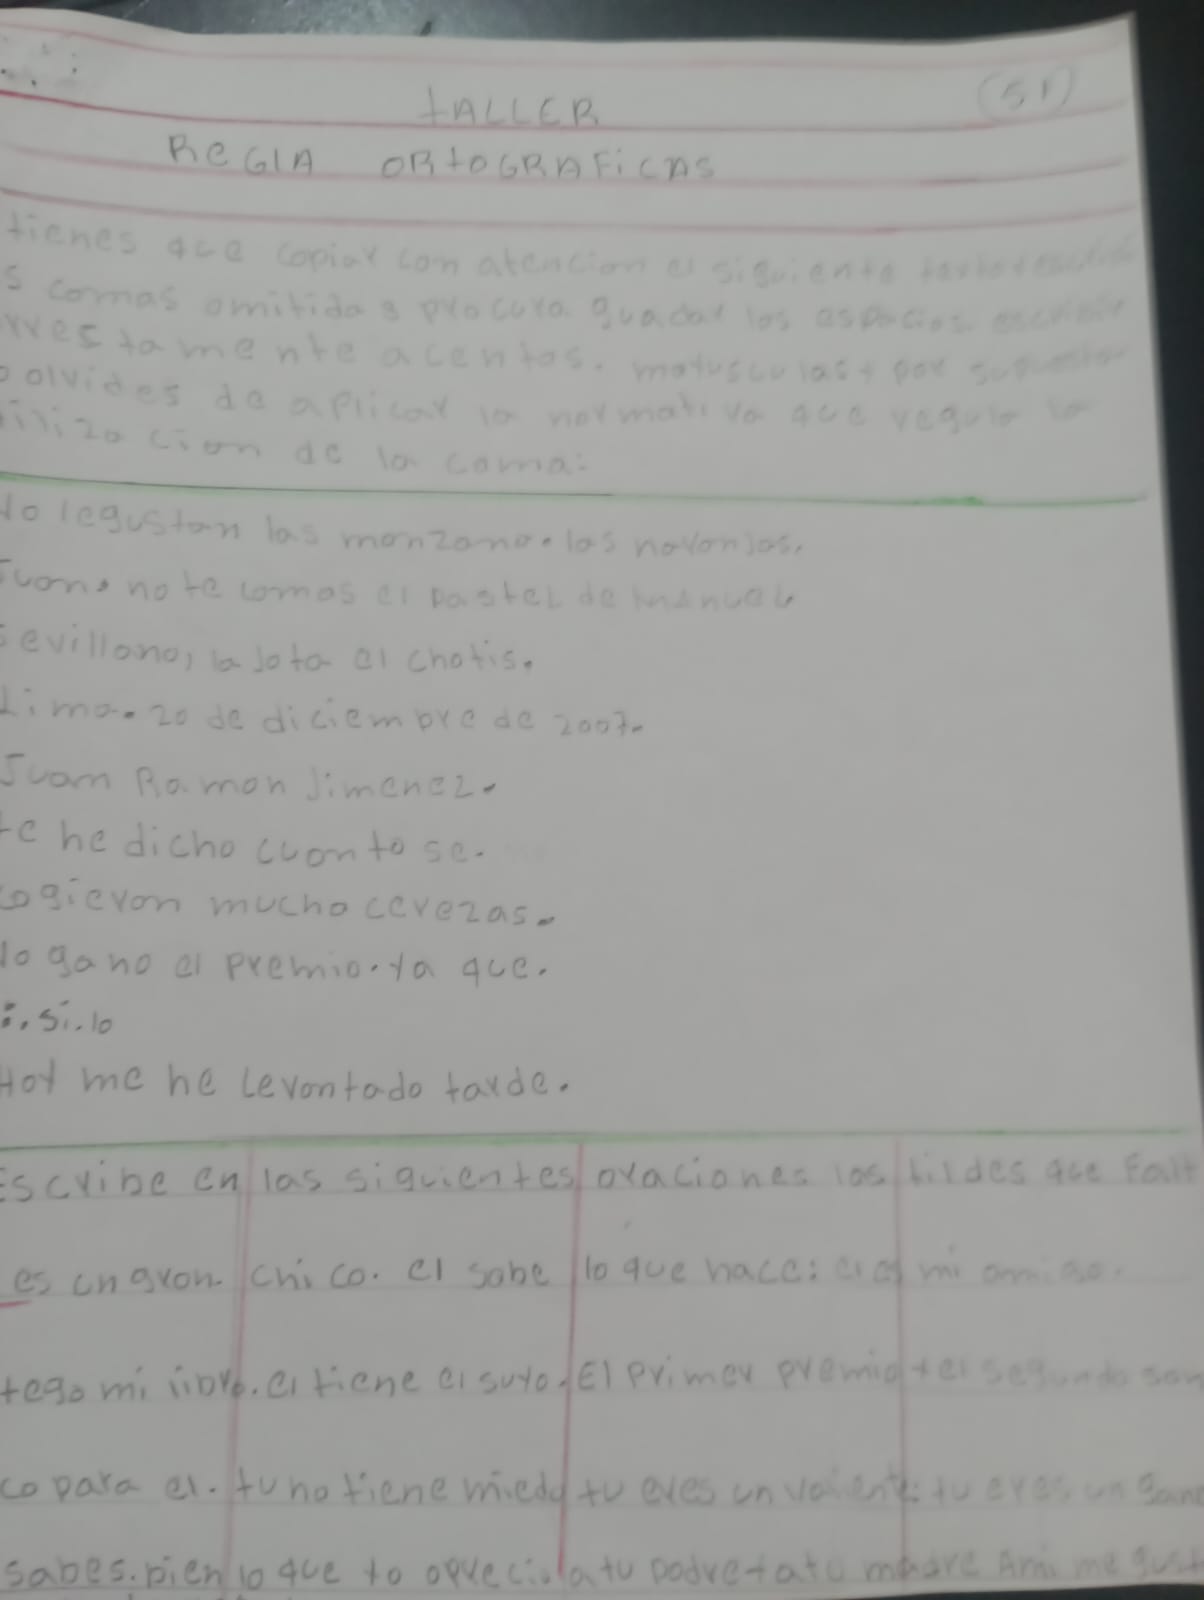 tALLER (51)
ReGlA ORtOGRAFiCAS
tienes que copiar con atencion el siguiente
s comas omitidas procura guadar los espacios. escribir
rrestamente acentos. matusculas t por supuesto
o olvides de aplicar la normativa que regula la
iliza cion de la coma:
No legustan las manzana. las naranjas.
Juan. no te comas el pastel de manuel
sevillano, la Jota el chotis.
Lima. 20 de diciembre de 2007.
Juan Ramon Jimenez.
te he dicho cuanto se.
cogieron mucho cerezas.
No gano el premio. ya que.
si. lo
Hoy me he Levantado tarde.
Escribe en las siguientes oraciones las tildes que Falt
es un gran. chi co. el sabe lo que hace: el es mi amigo.
tego mi libro. el tiene el suyo. El Primer premio t el segundo son
co para el. tu no tiene miedo tu eres un valiente: tu eres un gan
sabes. bien lo que to aprecia a tu padre t a tu madre Ami me gust